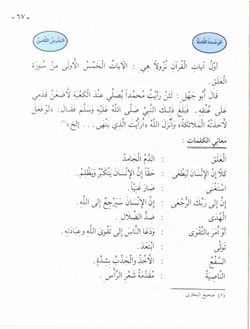 - ٦٧ -
الوحدة الثامنة
الدرس الثامن
أوّلُ آياتِ القُرآنِ نُزُولاً هِيَ : الآياتُ الخَمْسُ الأُولى مِنْ سُورَةِ
العَلَقِ.
قَالَ أَبُو جَهْلٍ : لَئِنْ رَأَيْتُ مُحَمَّداً يُصَلِّي عِنْدَ الكَعْبَةِ لأَضَعَنَّ قَدَمِي
عَلَى عُنُقِهِ. فَبَلَغَ ذَلِكَ النَّبِيَّ صَلَّى اللَّهُ عَلَيْهِ وَسَلَّمَ فَقَالَ : «لَوْ فَعَلَ
لَأَخَذَتْهُ المَلَائِكَةُ» وَأَنْزَلَ اللَّهُ «أَرَأَيْتَ الَّذِي يَنْهَى... إلخ»(١)
مَعَانِي الكَلِمَات :
العَلَق : الدَّمُ الجَامِدُ
كَلَّا إِنَّ الإِنْسَانَ لَيَطْغَى : حَقًّا إِنَّ الإِنْسَانَ يَتَكَبَّرُ وَيَظْلِمُ.
اسْتَغْنَى : صَارَ غَنِيًّا.
إِنَّ إِلَى رَبِّكَ الرُّجْعَى : إِنَّ الإِنْسَانَ سَيَرْجِعُ إِلَى اللَّهِ.
الهُدَى : ضِدُّ الضَّلَالِ.
أَوْ أَمَرَ بِالتَّقْوَى : وَدَعَا النَّاسَ إِلَى تَقْوَى اللَّهِ وَعِبَادَتِهِ.
تَوَلَّى : ابْتَعَدَ.
السَّفْعُ : الأَخْذُ وَالْجَذْبُ بِشِدَّةٍ.
النَّاصِيَةُ : مُقَدِّمَةُ شَعْرِ الرَّأْسِ.
(١) صحيح البخاري